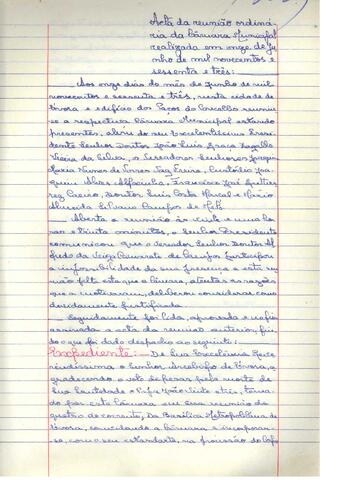 Acta da reunião ordiná-
ria da Câmara Municipal
realizada em onze de Ju-
nho de mil novecentos e
sessenta e três:
Aos onze dias do mês de Junho de mil
novecentos e sessenta e três, nesta cidade de
Évora e edifício dos Paços do Concelho reuniu-
se a respectiva Câmara Municipal estando
presentes, além do seu Excelentíssimo Presi-
dente Senhor Doutor João Luís Vieira da Silva, os Vereadores Senhores Joaquim
Maria Nunes de Torres Vaz Freire, Custódio Joa-
quim Alves Alfacinha, Francisco José
Caeiro, Doutor Luís Costa e Mário
Almeida Silvano Campos de
Aberta a reunião às vinte e uma ho-
ras e trinta minutos, o Senhor Presidente
comunicou que o Vereador Senhor Doutor Al-
fredo da Veiga de Campos justificou
a impossibilidade da sua presença a esta reu-
nião, falta esta que a Câmara, atentas as razões
que a motivaram, deliberou considerar como
devidamente justificada.
Seguidamente foi lida, aprovada e vai ser
assinada a acta da reunião anterior, fin-
do o que foi dado despacho ao seguinte:
Expediente: - De Sua Excelência Reve-
rendíssima o Senhor Arcebispo de Évora, a-
gradecendo o voto de pesar pela morte de
Sua Santidade o Papa João Vinte e três, toma-
do por esta Câmara em sua reunião de
quatro do corrente; Da Basílica Metropolitana de
Évora, convidando a Câmara a incorporar-
se, com o seu estandarte, na procissão do Corpo